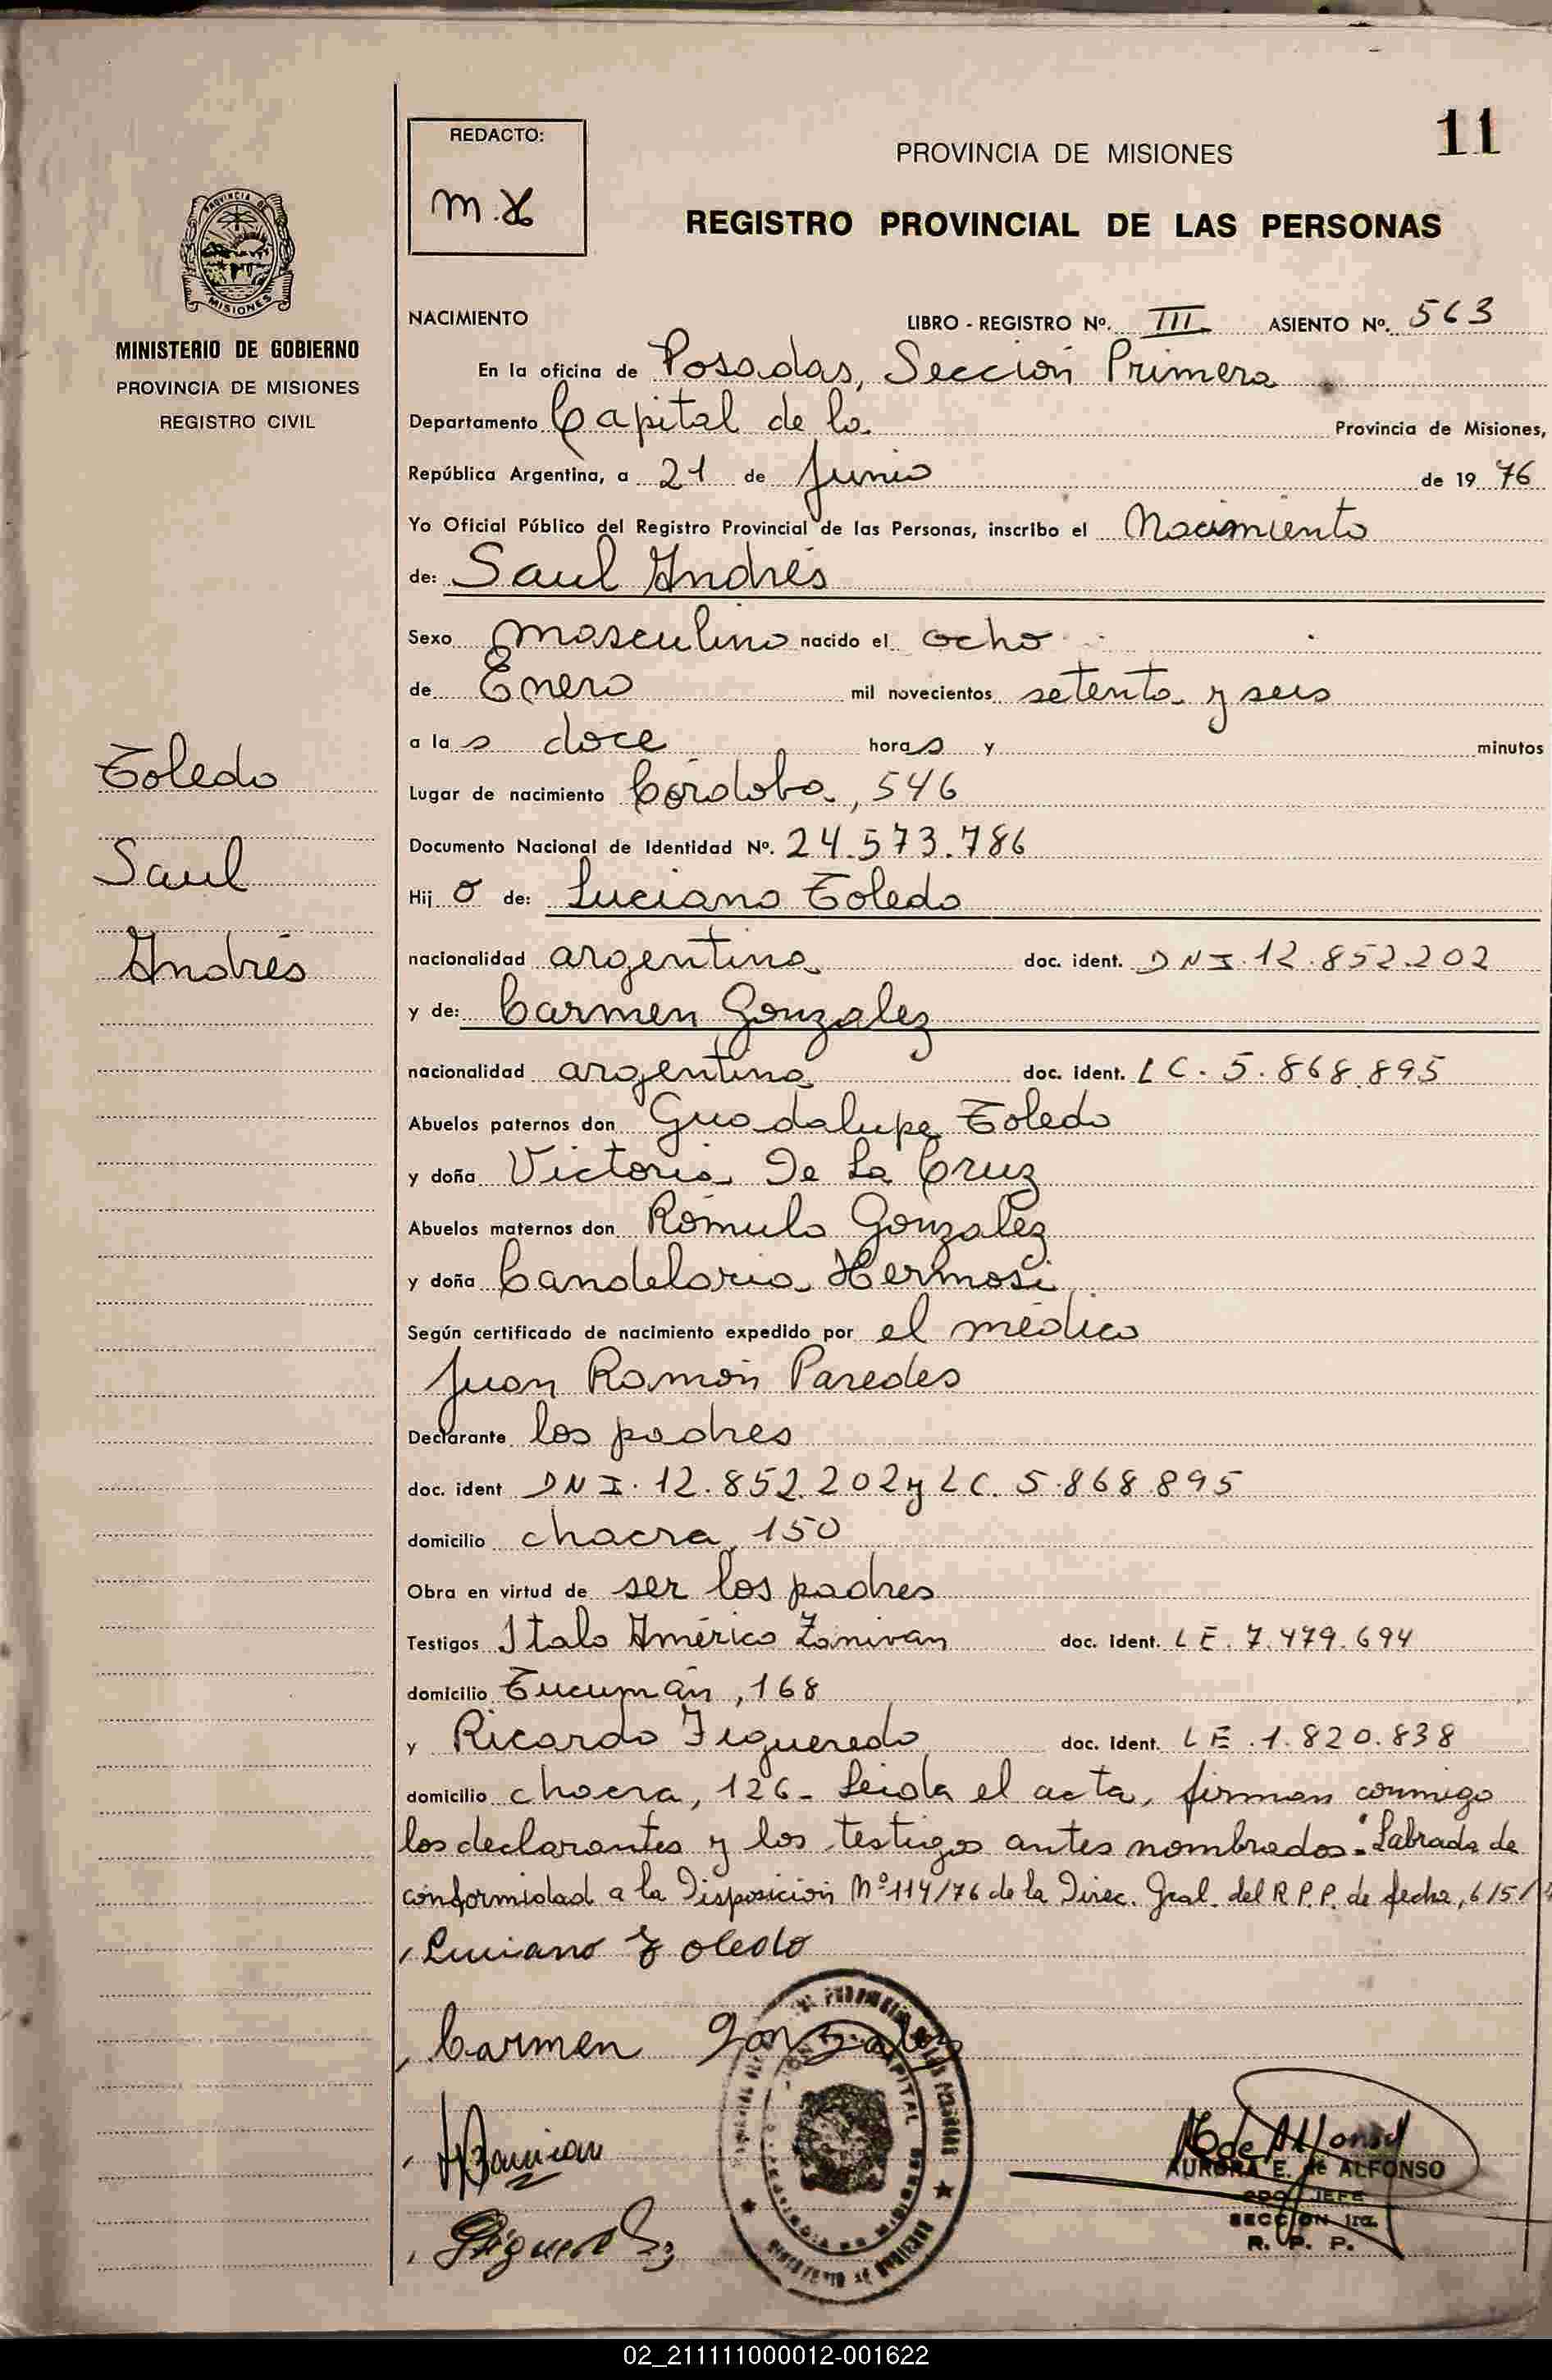 11
REDACTO:
PROVINCIA DE MISIONES
REGISTRO PROVINCIAL DE LAS PERSONAS
PROVINCIA DE
MISIONES
MINISTERIO DE GOBIERNO
PROVINCIA DE MISIONES
REGISTRO CIVIL
Toledo
Saul
Andrés
NACIMIENTO LIBRO - REGISTRO Nº. III ASIENTO Nº. 563
En la oficina de Posadas, Sección Primera
Departamento Capital de la Provincia de Misiones,
República Argentina, a 21 de Junio de 19 76
Yo Oficial Público del Registro Provincial de las Personas, inscribo el Nacimiento
de: Saul Andrés
Sexo masculino nacido el ocho
de Enero mil novecientos setenta y seis
a la s doce hora s y minutos
Lugar de nacimiento Córdoba, 546
Documento Nacional de Identidad Nº. 24.573.786
Hij o de: Luciano Toledo
nacionalidad argentina doc. ident. DNI. 12.852.202
y de: Carmen Gonzalez
nacionalidad argentina doc. ident. LC. 5.868.895
Abuelos paternos don Guadalupe Toledo
y doña Victoria De La Cruz
Abuelos maternos don Rómulo Gonzalez
y doña Candelaria Hermosi
Según certificado de nacimiento expedido por el médico
Juan Ramón Paredes
Declarante los padres
doc. ident DNI. 12.852.202 y LC. 5.868.895
domicilio chacra, 150
Obra en virtud de ser los padres
Testigos Italo Américo Zanivan doc. ident. LE. 7.479.694
domicilio Tucumán, 168
y Ricardo Figueredo doc. ident. LE. 1.820.838
domicilio chacra, 126- Leida el acta, firman conmigo
los declarantes y los testigos antes nombrados.- Labrada de
conformidad a la Disposición Nº 114/76 de la Direc. Gral. del R.P.P. de fecha, 6/5/
Luciano Toledo
Carmen Gonzalez
AURORA E. de ALFONSO
JEFE
SECCION 1ra.
R. P. P.
02_211111000012-001622